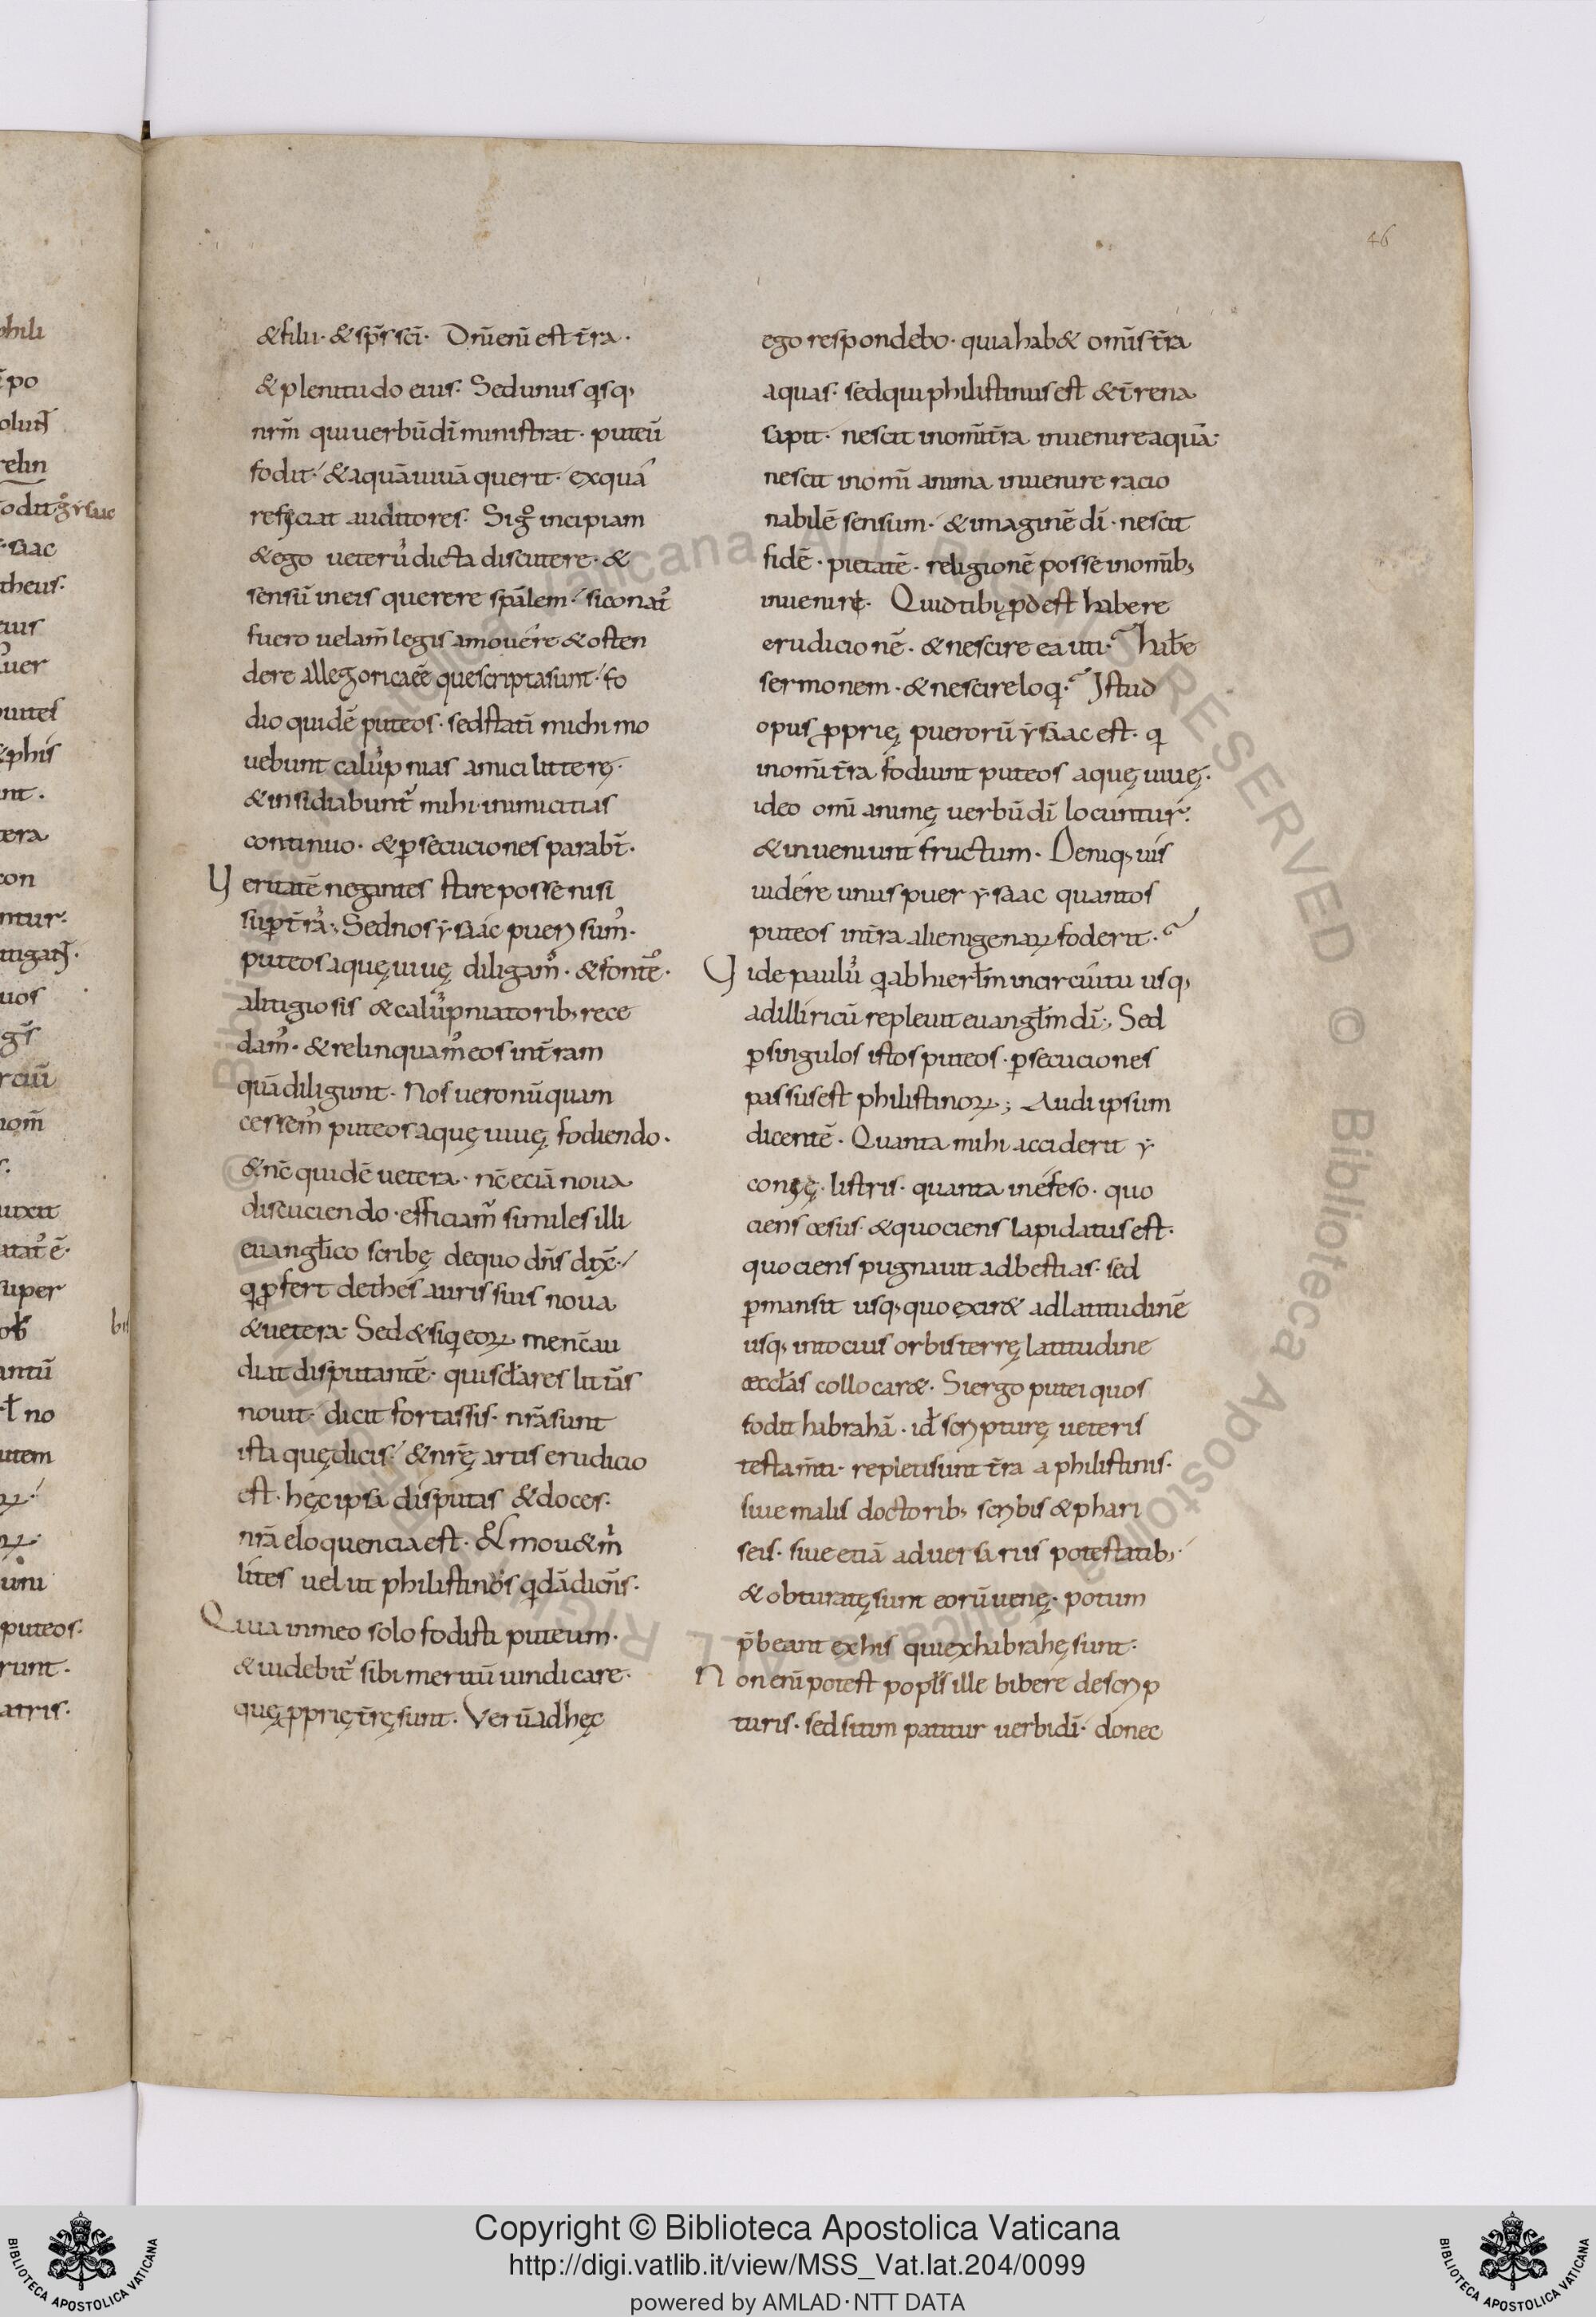 46
&filii· &sp̄s sc̄i· Dn̄i eni̅ est t̄ra·
& plenitudo eius· Sed unus qisq;
nrm̄ qui uerbū di̅ ministrat· puteū
fodit· & aquā uiuā querit· ex qua
reficiat auditores· Sigº incipiam
& ego ueterū dicta discutere· &
sensū in eis querere spālem· si conat᷒
fuero uelam̄ legis amouere & osten
dere allegoricaēe que scripta sunt· fo
dio quidē puteos· sed stati̅ michi mo
uebunt calūpnias amici litterę·
& insidiabunt᷒ mihi· inimicitias
continuo· & ꝑsecuciones parabt̄·
Veritatē negantes stare posse nisi
suꝑ t̄rā·, Sed nos ẏsaac pueri sum᷒·
puteos aquę uiuę diligam᷒· & fonte᷒·
a litigiosis & calūpniatorib; rece
dam᷒· & relinquam᷒ eos in t̄ram
quā diligunt· Nos uero nūquam
cessem᷒ puteos aquę uiuę fodiendo·
& nc̄ quidē uetera· nc̄ eciā noua
discuciendo· efficiam̄ similes illi
euangl̄ico scribę de quo dn̄s dix̄·
qi ꝓfert de theſ auris suis noua
& uetera· Sed & si qi eoꝝ men̄c au
diat disputantē· qui scl̄ares litt̄as
nouit· dicit fortassis· nr̄a sunt
ista quę dicis· & nr̄ę artis erudicio
est· hęc ipsa disputas & doces·
nrā eloquencia est· & mou& m̄
lites uelut philistinos qidā dicn̄s·
Quia in meo solo fodisti puteum·
& uidebit᷒ sibi meritū uindicare·
quę ꝓprię t̄rę sunt· Verū ad hęc
ego respondebo· quia hab& omi̅s t̄ra
aquas· sed qui philistinus est & t̄rena
sapit· nescit in omi̅ t̄ra inuenire aquā·
nescit in omi̅ anima inuenire racio
nabilē sensum· & imaginē di̅· nescit
fidē· pietatē· religionē posse in omi̅b;
inuenire· Quid tibi ꝓdest habere
erudicionē· & nescire ea uti· hab̄e
sermonem· & nescire loqi· Istud
opus ꝓprię puerorū ẏsaac est· qi
in omi̅ t̄ra fodiunt puteos aquę uiuę·
ideo omi̅ animę uerbū di̅ locuntur·
& inueniunt fructum· Deniq; uis
uidere unus puer ẏsaac quantos
puteos in t̄ra alienigenaꝝ foderit·
Vide paulū qi ab hierl̄m in circuitu usq;
ad illiricū repleuit euangl̄m di̅·, Sed
ꝑ singulos istos puteos· ꝑsecuciones
passus est philistinoꝝ; Audi ipsum
dicentē· Quanta mihi acciderit ẏ
conię· listris· quanta in efeso· quo
ciens cesus· & quociens lapidatus est·
quociens pugnauit ad bestias· sed
ꝑmansit usq; quo exir& ad latitudinē
usq; in tocius orbis terrę latitudine
ęccl̄as collocar&· Si ergo putei quos
fodit habrahā· id̄ scripturę ueteris
testam̄ti· repleti sunt t̄ra a philistinis·
siue malis doctorib; scribis & phari
seis· siue etiā aduersariis potestatib;·
& obturatę sunt eorū uenę· potum
p̄beant ex his qui ex habrahę sunt·
Non eni̅ potest popl̄s ille bibere de scrip
turis· sed sitim patitur uerbi di̅· donec
Copyright © Biblioteca Apostolica Vaticana
http://digi.vatlib.it/view/MSS_Vat.lat.204/0099
powered by AMLAD·NTT DATA
BIBLIOTECA APOSTOLICA VATICANA
BIBLIOTECA APOSTOLICA VATICANA